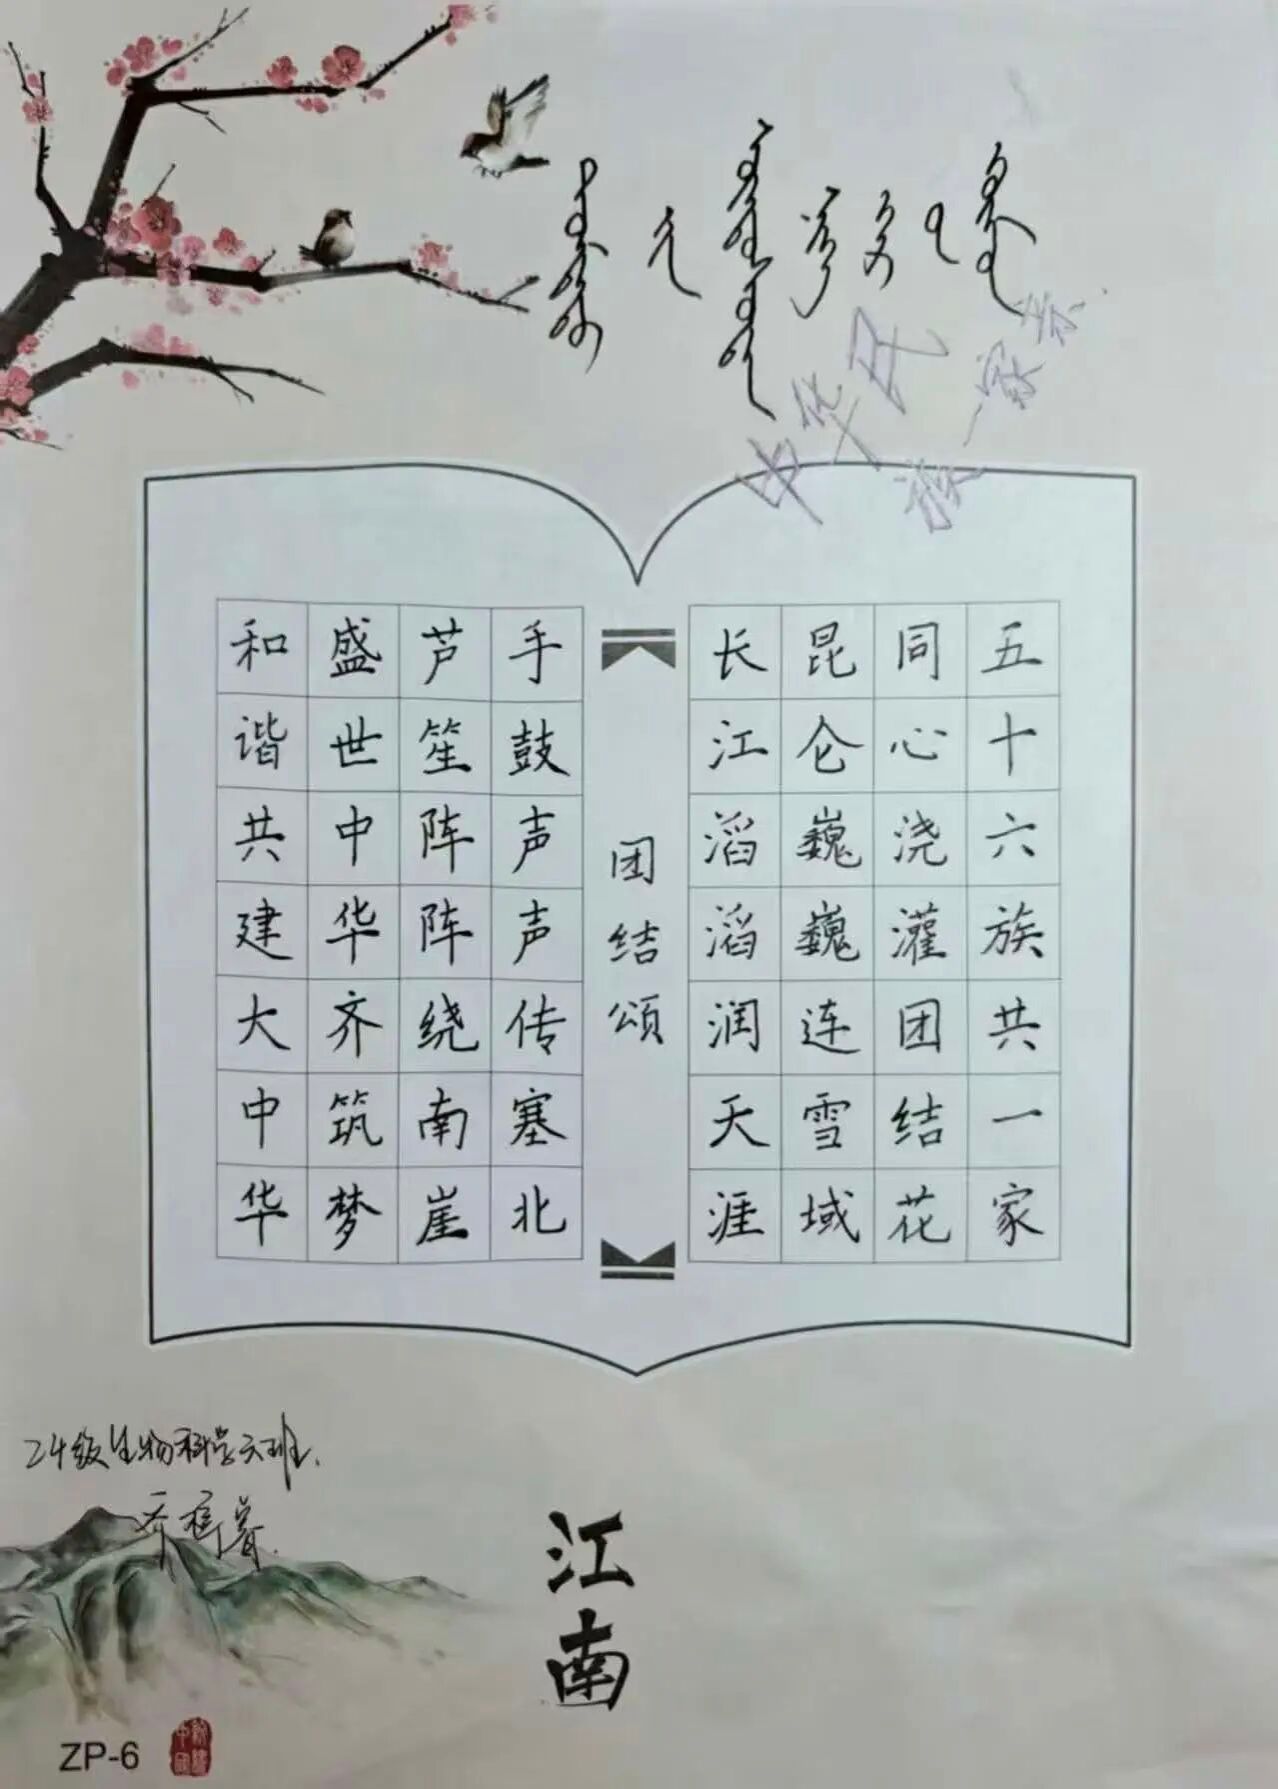 中华民
族一家亲
五十六族共一家
同心浇灌团结花
昆仑巍巍连雪域
长江滔滔润天涯
团结颂
手鼓声声传塞北
芦笙阵阵绕南崖
盛世中华齐筑梦
和谐共建大中华
24级生物科学六班.
江南
ZP-6